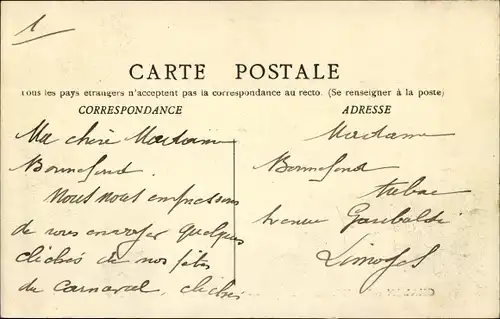 1
CARTE POSTALE
Tous les pays étrangers n'acceptent pas la correspondance au recto. (Se renseigner à la poste)
CORRESPONDANCE
Ma chère Madame
Bonnefond.
Nous nous empressons
de vous envoyer quelques
clichés de nos fêtes
du carnaval, clichés
ADRESSE
Madame
Bonnefond
tabac
Avenue Garibaldi
Limoges